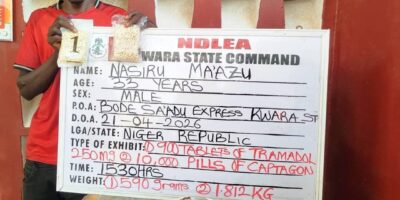 1
NDLEA
WARA STATE COMMAND
NAME: NASIRU MA'AZU
AGE: 32 YEARS
SEX: MALE
P.O.A: BODE SA'ADU EXPRESS KWARA ST
D.O.A: 21-04-2026
LGA/STATE: NIGER REPUBLIC
TYPE OF EXHIBIT: ① 900 TABLETS OF TRAMADOL
250MG ② 10,000 PILLS OF CAPTAGON
TIME: 1530HRS
WEIGHT: ① 590 grams ② 1.812 KG